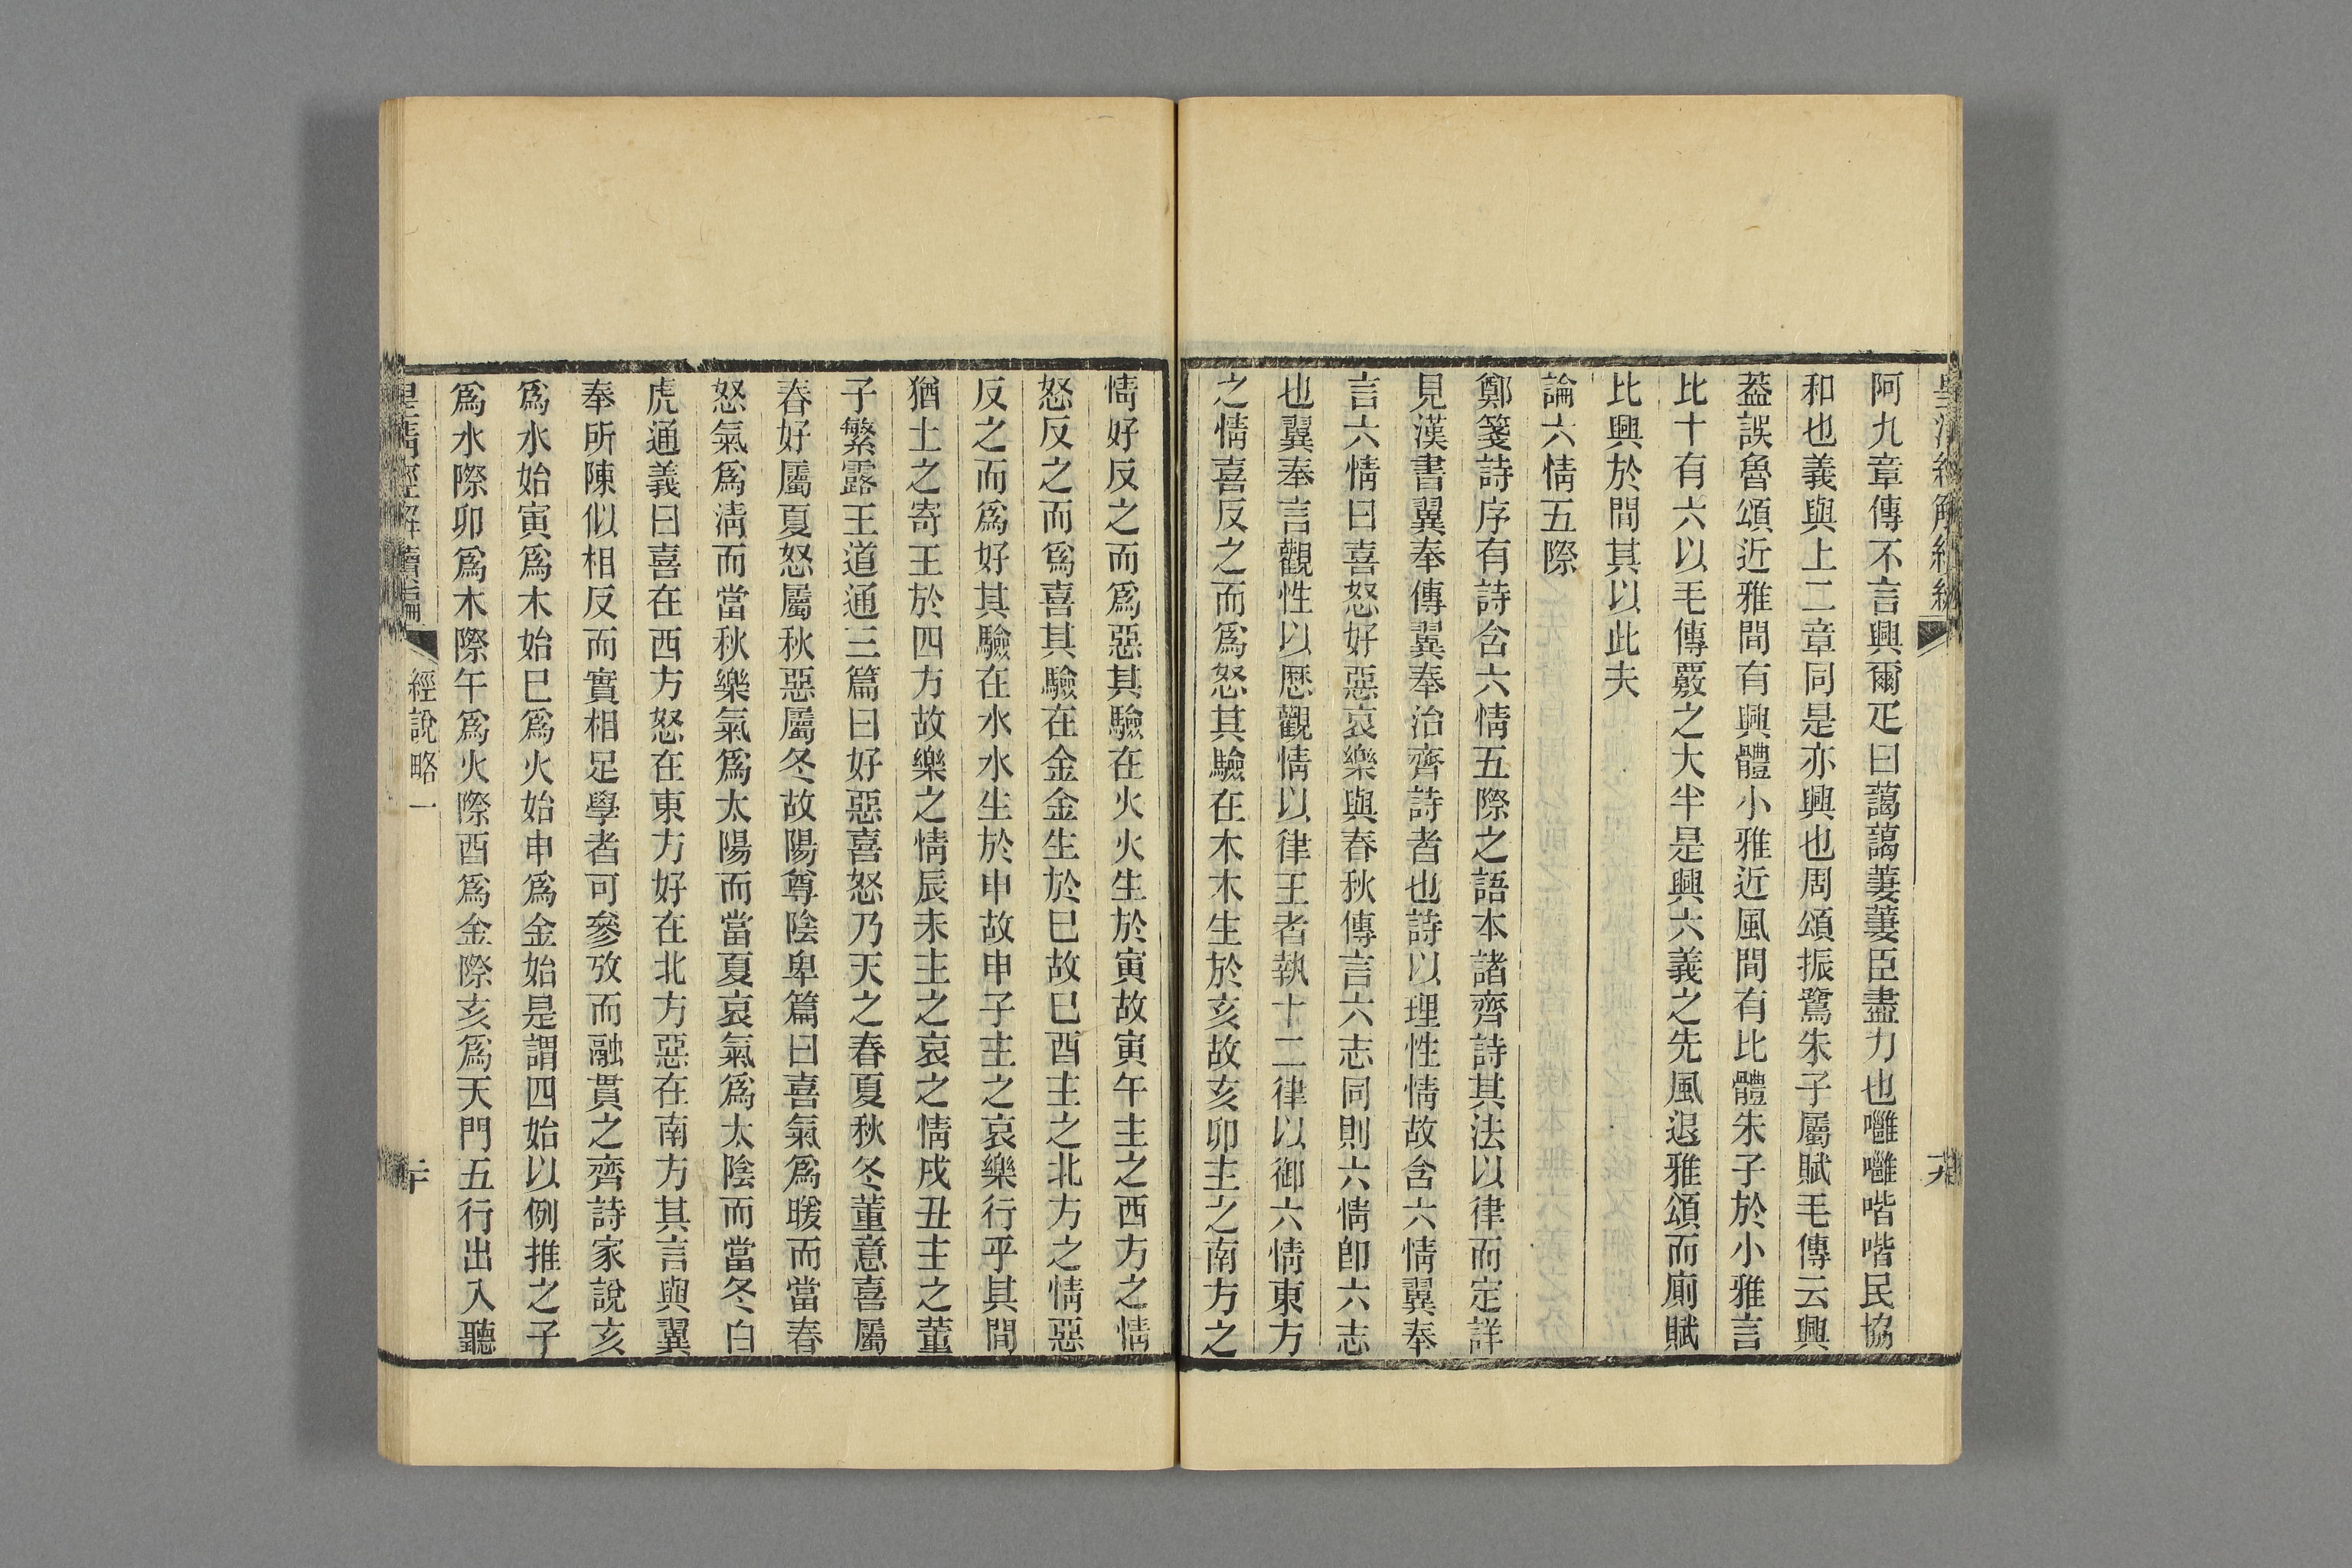 皇清經解續編
阿九章傳不言興爾疋曰藹藹萋萋臣盡力也噰噰喈喈民協
和也義與上二章同是亦興也周頌振鷺朱子屬賦毛傳云興
葢誤魯頌近雅間有興體小雅近風間有比體朱子於小雅言
比十有六以毛傳覈之大半是興六義之先風退雅頌而廁賦
比興於間其以此夫
論六情五際
鄭箋詩序有詩含六情五際之語本諸齊詩其法以律而定詳
見漢書翼奉傳翼奉治齊詩者也詩以理性情故含六情翼奉
言六情曰喜怒好惡哀樂與春秋傳言六志同則六情卽六志
也翼奉言觀性以厯觀情以律王者執十二律以御六情東方
之情喜反之而爲怒其驗在木木生於亥故亥卯主之南方之
情好反之而爲惡其驗在火火生於寅故寅午主之西方之情
怒反之而爲喜其驗在金金生於巳故巳酉主之北方之情惡
反之而爲好其驗在水水生於申故申子主之哀樂行乎其間
猶土之寄王於四方故樂之情辰未主之哀之情戌丑主之董
子繁露王道通三篇曰好惡喜怒乃天之春夏秋冬董意喜屬
春好屬夏怒屬秋惡屬冬故陽尊陰卑篇曰喜氣爲暖而當春
怒氣爲淸而當秋樂氣爲太陽而當夏哀氣爲太陰而當冬白
虎通義曰喜在西方怒在東方好在北方惡在南方其言與翼
奉所陳似相反而實相足學者可參攷而融貫之齊詩家說亥
爲水始寅爲木始巳爲火始申爲金始是謂四始以例推之子
爲水際卯爲木際午爲火際酉爲金際亥爲天門五行出入聽
皇淸經解續編
經說略一
二十